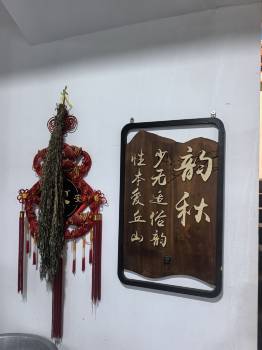 韵秋
少无适俗韵
性本爱丘山